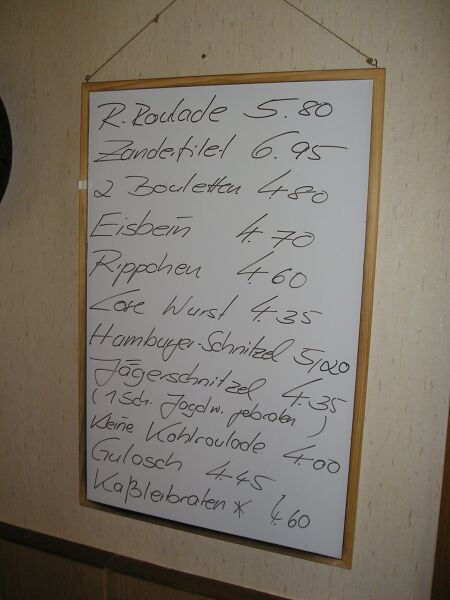 R. Roulade 5.80
Zanderfilet 6.95
2 Bouletten 4.80
Eisbein 4.70
Rippchen 4.60
Lose Wurst 4.35
Hamburger-Schnitzel 5,00
Jägerschnitzel 4.35
(1 Sch. Jagdw. gebraten)
Kleine Kohlroulade 4.00
Gulasch 4.45
Kaßlerbraten * 4.60